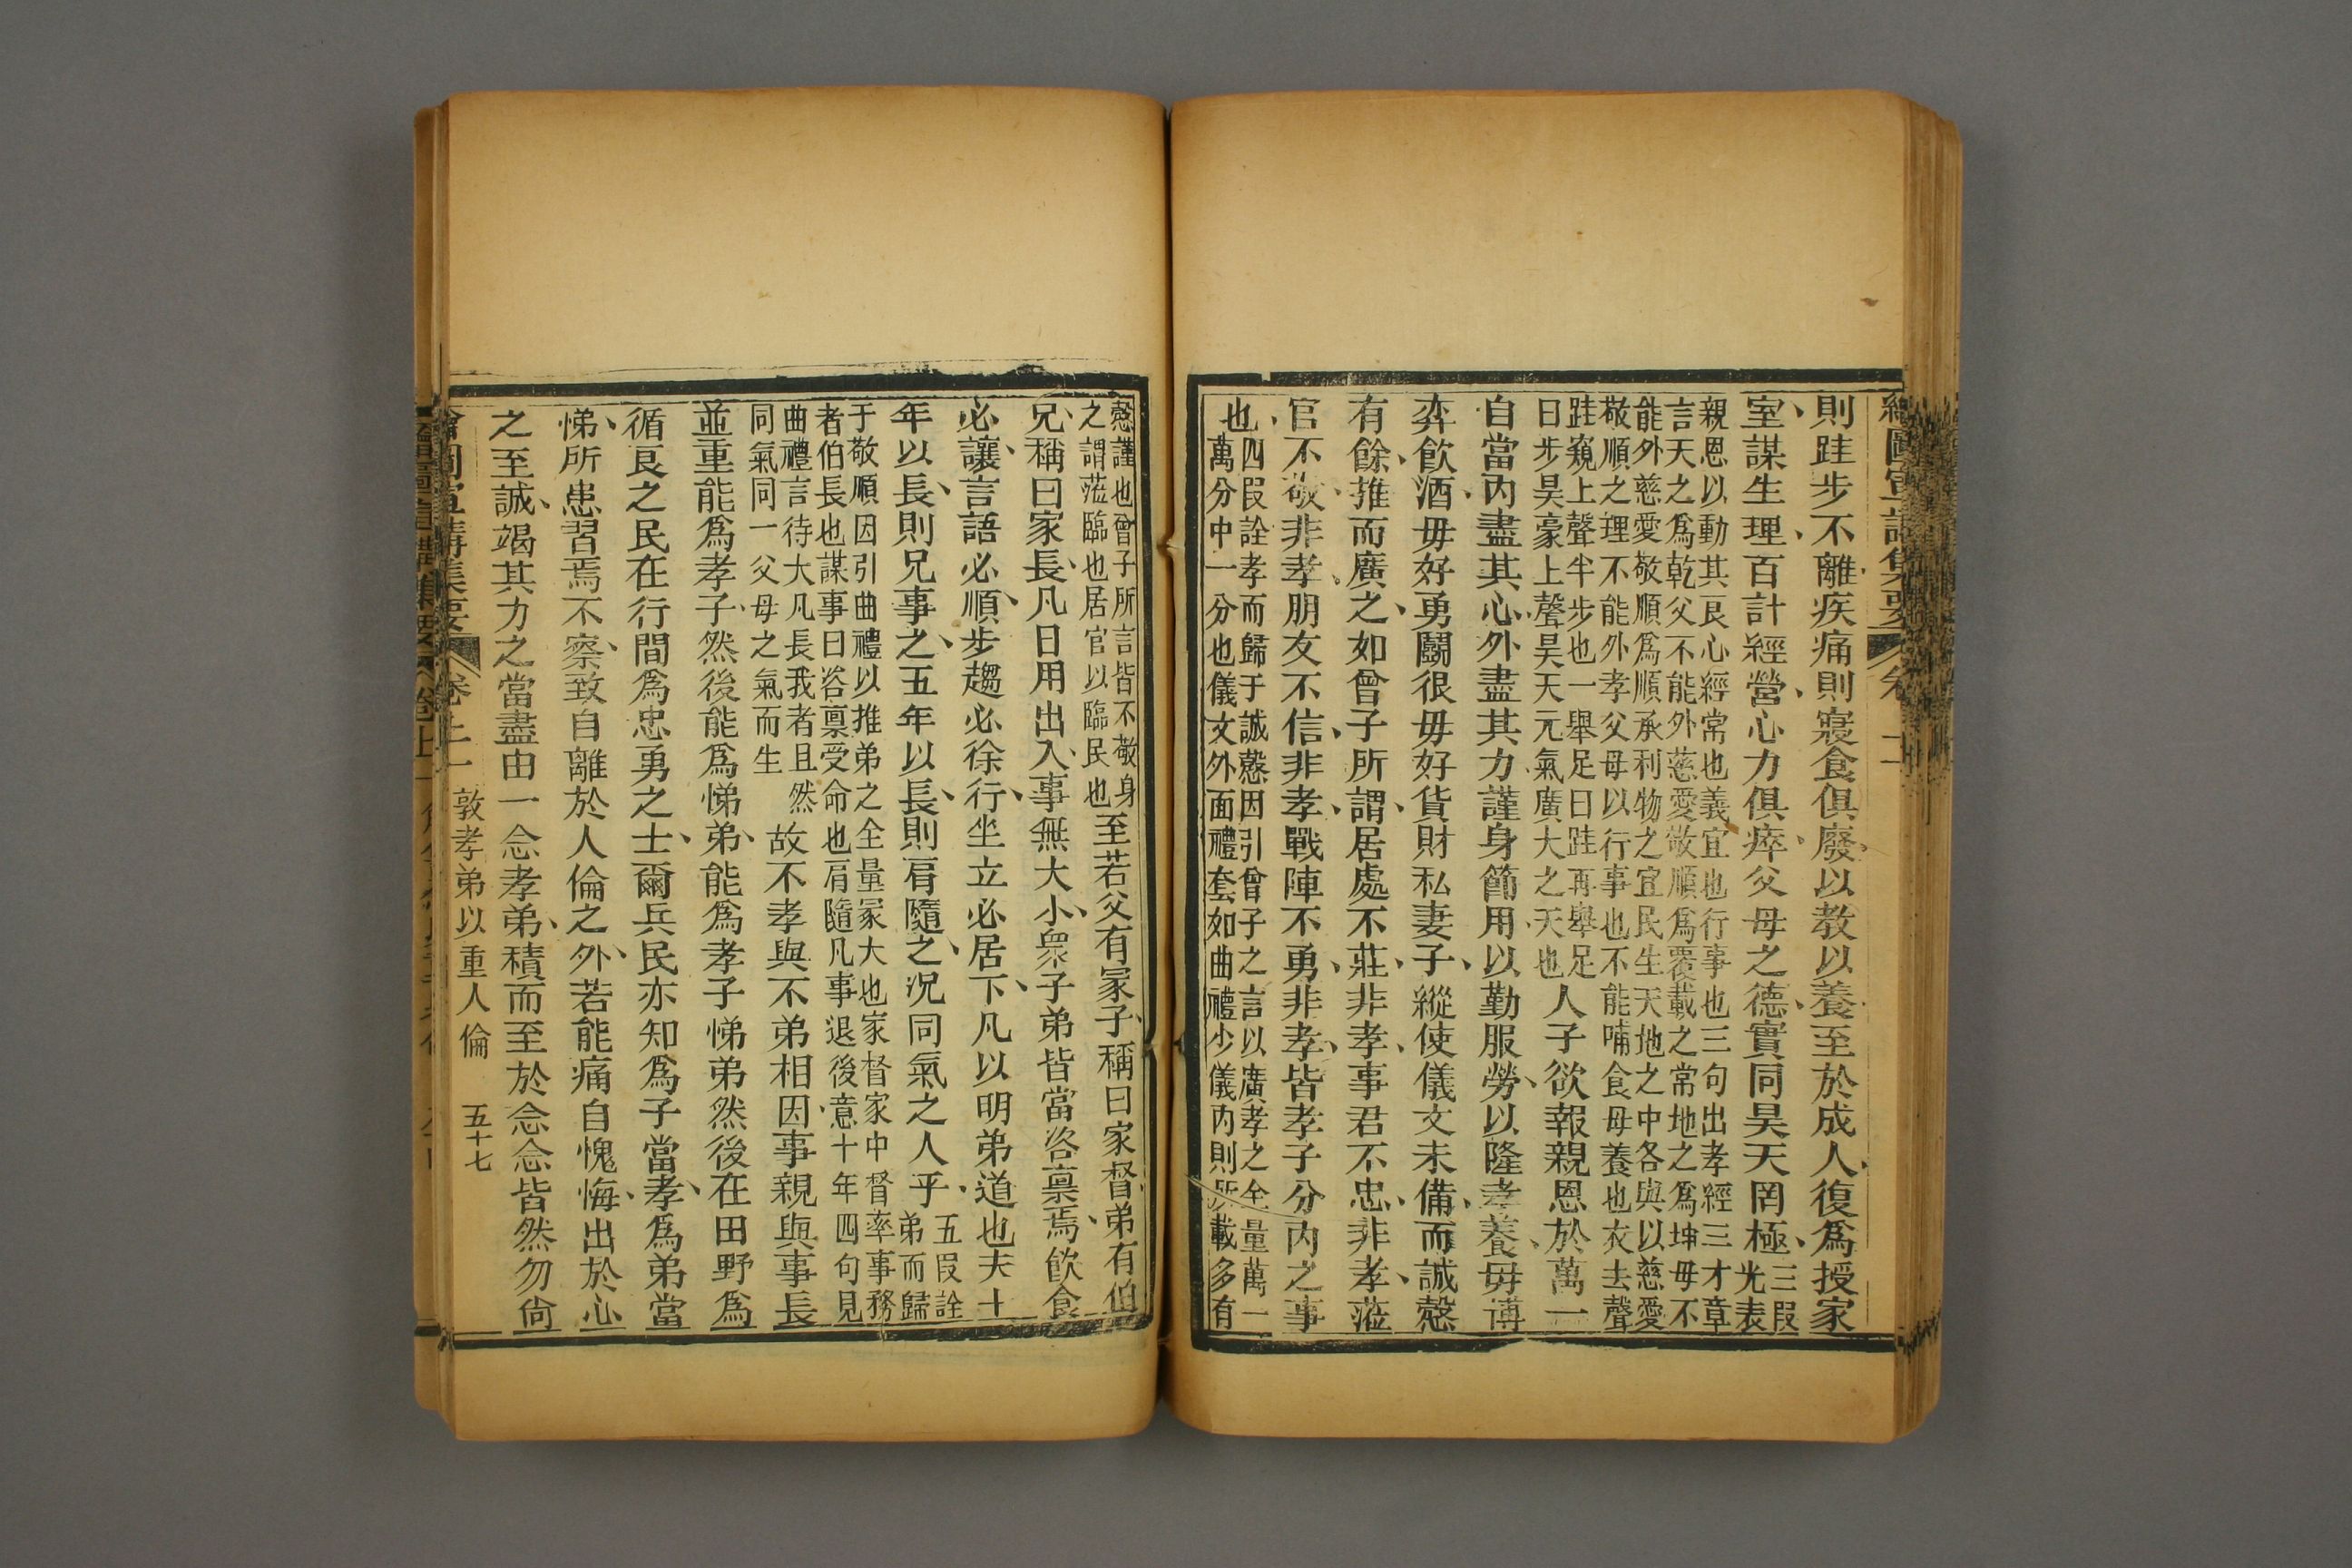 繪圖宣講集要 卷二
則跬步不離疾痛則寢食俱廢以教以養至於成人復爲授家
室謀生理百計經營心力俱瘁父母之德實同昊天罔極三叚光表
親恩以動其良心經常也義宜也行事也三句出孝經三才章
言天之爲乾父不能外慈愛敬順爲覆載之常地之爲坤毋不
能外慈愛敬順爲順承利物之宜民生天地之中各與以慈愛
敬順之理不能外孝父母以行事也不能哺食母養也衣去聲
跬窺上聲半步也一舉足曰跬再舉足
曰步昊豪上聲昊天元氣廣大之天也人子欲報親恩於萬一
自當內盡其心外盡其力謹身節用以勤服勞以隆孝養毋博
弈飲酒毋好勇鬬很毋好貨財私妻子縱使儀文未備而誠慤
有餘推而廣之如曾子所謂居處不莊非孝事君不忠非孝蒞
官不敬非孝朋友不信非孝戰陣不勇非孝皆孝子分內之事
也四叚詮孝而歸于誠慤因引曾子之言以廣孝之全量萬一
萬分中一分也儀文外面禮套如曲禮少儀內則所載多有
慤謹也曾子所言皆不敬身
之謂蒞臨也居官以臨民也至若父有冢子稱曰家督弟有伯
兄稱曰家長凡日用出入事無大小衆子弟皆當咨禀焉飲食
必讓言語必順步趨必徐行坐立必居下凡以明弟道也夫十
年以長則兄事之五年以長則肩隨之况同氣之人乎五叚詮弟而歸
于敬順因引曲禮以推弟之全量冢大也家督家中督率事務
者伯長也謀事曰咨禀受命也肩隨凡事退後意十年四句見
曲禮言待大凡長我者且然
同氣同一父母之氣而生故不孝與不弟相因事親與事長
並重能爲孝子然後能爲悌弟能爲孝子悌弟然後在田野爲
循良之民在行間爲忠勇之士爾兵民亦知爲子當孝爲弟當
悌所患習焉不察致自離於人倫之外若能痛自愧悔出於心
之至誠竭其力之當盡由一念孝弟積而至於念念皆然勿尙
繪圖宣講集要 卷二 敦孝弟以重人倫 五十七